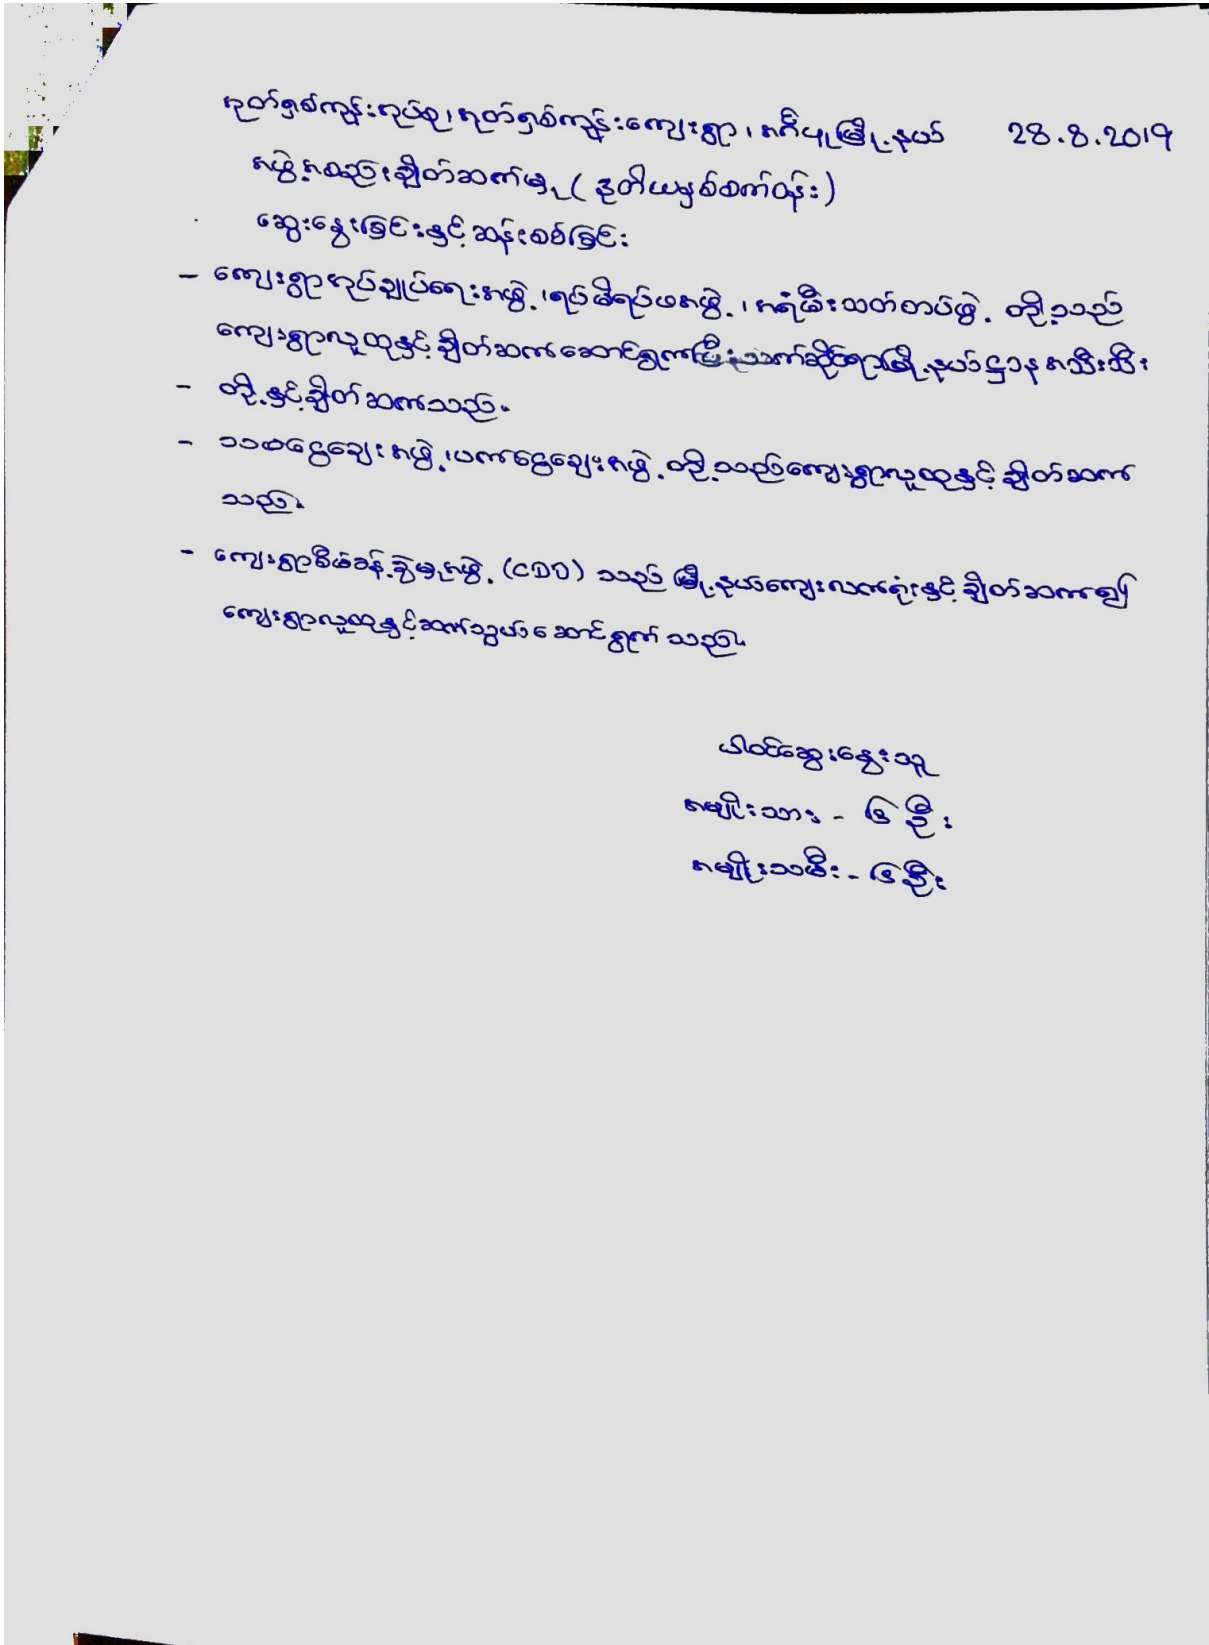 အုတ်ရှစ်ကုန်းအုပ်စု၊ အုတ်ရှစ်ကုန်းကျေးရွာ၊ အင်္ဂပူမြို့နယ် 28.8.2019
အဖွဲ့အစည်းချိတ်ဆက်မှု (ဒုတိယနှစ်စက်ဝန်း)
ဆွေးနွေးခြင်းနှင့် ဆန်းစစ်ခြင်း
– ကျေးရွာအုပ်ချုပ်ရေးအဖွဲ့၊ ရပ်မိရပ်ဖအဖွဲ့၊ အရံမီးသတ်တပ်ဖွဲ့ တို့သည်
ကျေးရွာလူထုနှင့် ချိတ်ဆက်ဆောင်ရွက်ပြီး သက်ဆိုင်ရာမြို့နယ်ဌာနအသီးသီး
– တို့နှင့် ချိတ်ဆက်သည်။
– သသမငွေချေးအဖွဲ့၊ ပကငွေချေးအဖွဲ့ တို့သည် ကျေးရွာလူထုနှင့် ချိတ်ဆက်
သည်။
– ကျေးရွာစီမံခန့်ခွဲမှုအဖွဲ့ (CDD) သည် မြို့နယ်ကျေးလက်ရုံးနှင့် ချိတ်ဆက်၍
ကျေးရွာလူထုနှင့် ဆက်သွယ်ဆောင်ရွက် သည်။
ပါဝင်ဆွေးနွေးသူ
အမျိုးသား - ၆ ဦး
အမျိုးသမီး - ၆ ဦး